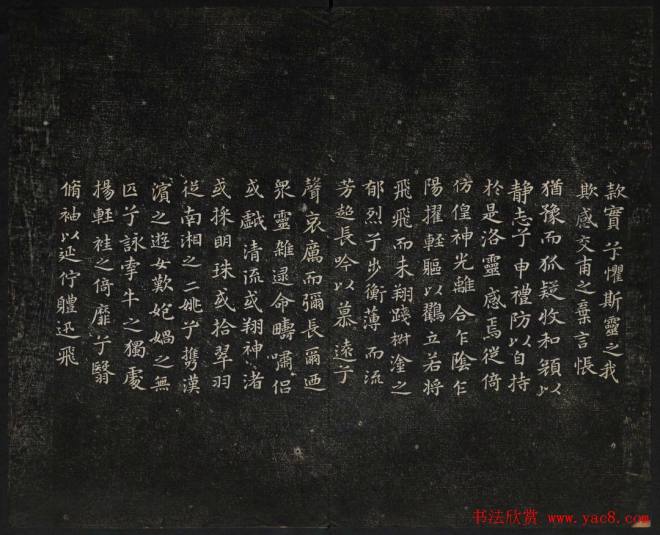 款實兮懼斯靈之我
欺感交甫之棄言悵
猶豫而狐疑收和顏以
静志兮申禮防以自持
於是洛靈感焉徙倚
仿偟神光離合乍陰乍
陽擢輕軀以鸛立若將
飛飛而未翔踐椒塗之
郁烈兮步衡薄而流
芳超長吟以慕遠兮
聲哀厲而彌長爾迺
衆靈雜遝命疇嘯侣
或戱清流或翔神渚
或採明珠或拾翠羽
從南湘之二姚兮攜漢
濱之遊女歎匏媧之無
匹兮詠牽牛之獨處
揚輕袿之倚靡兮翳
脩袖以延佇體迅飛
书法欣赏 www.yac8.com